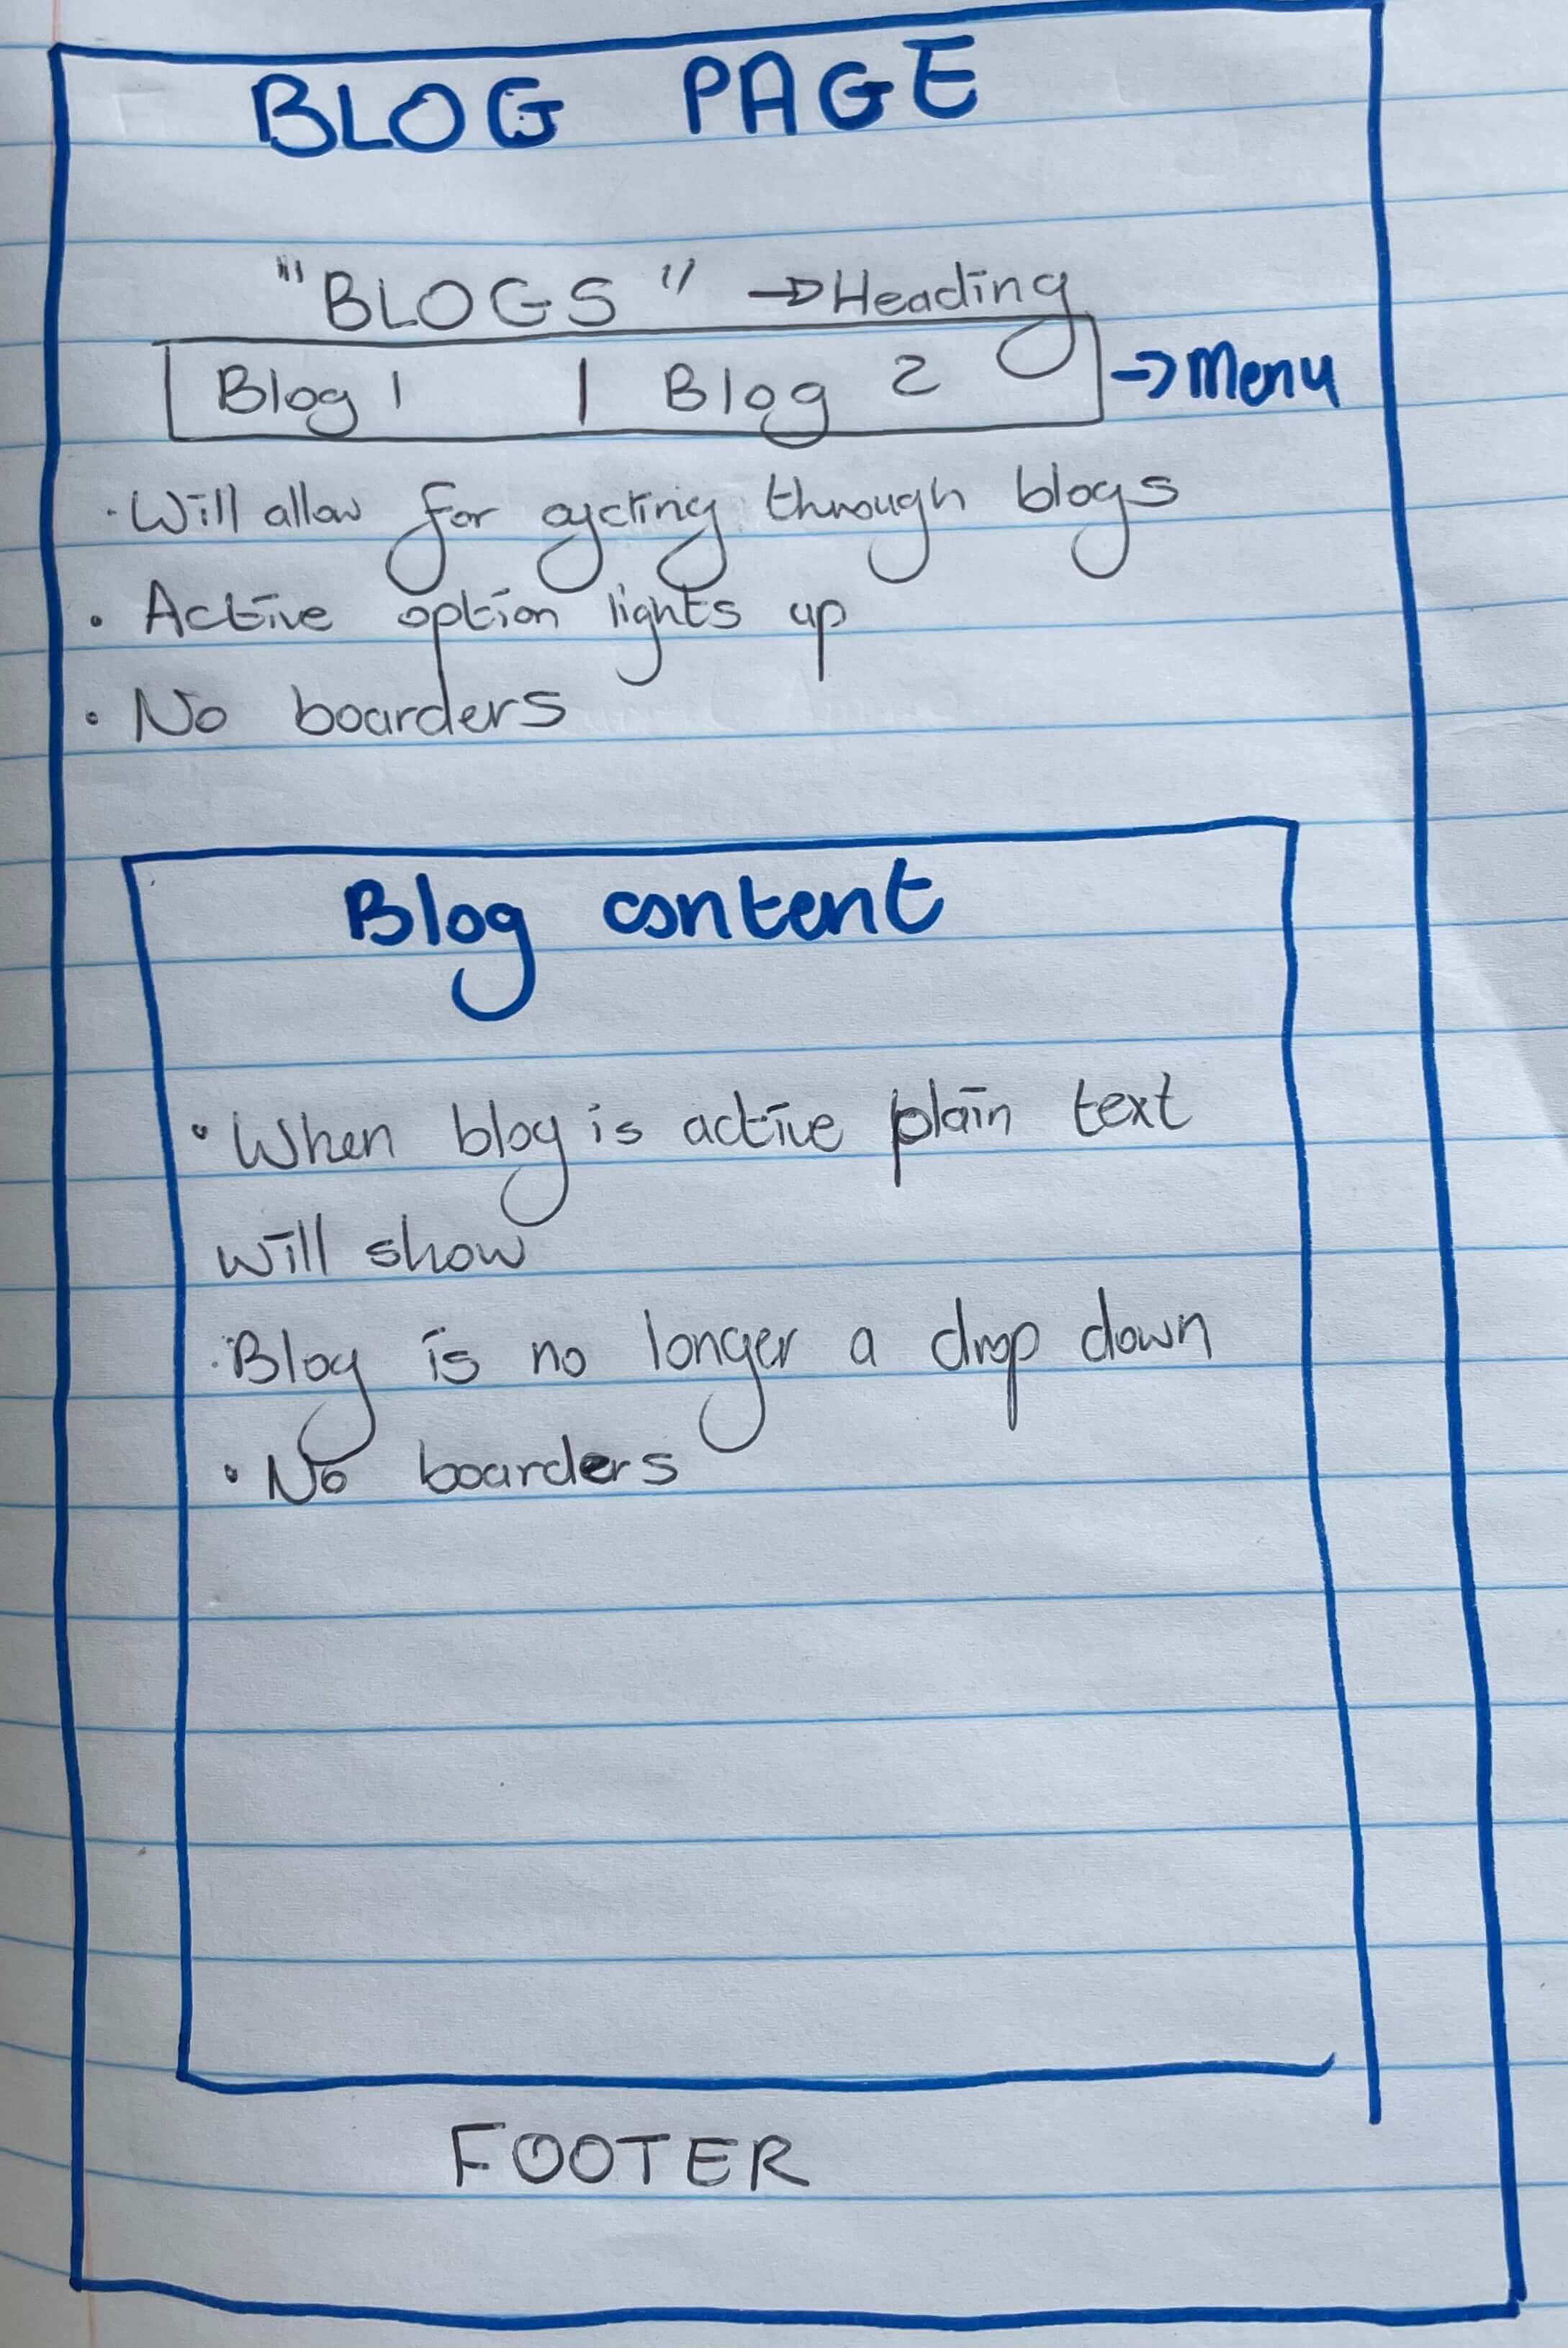 BLOG PAGE
"BLOGS" → Heading
Blog 1 | Blog 2 → Menu
• Will allow for cycling through blogs
• Active option lights up
• No boarders
Blog content
• When blog is active plain text
will show
• Blog is no longer a drop down
• No boarders
FOOTER